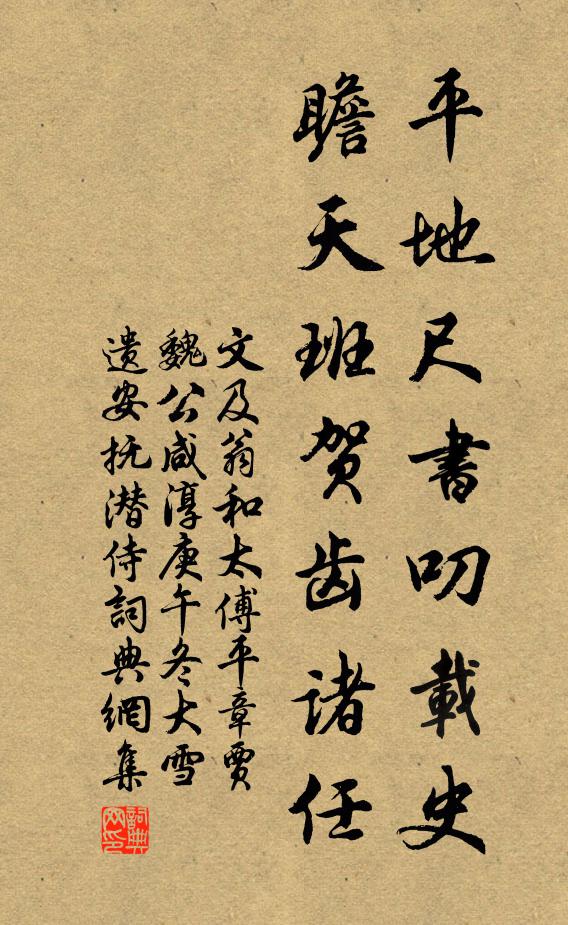 平地尺書叨載史
瞻天班贺齿诸任
文及翁和太傅平章贾
魏公咸淳庚午冬大雪
遗安抚潜侍詞典網集
詞典
网印